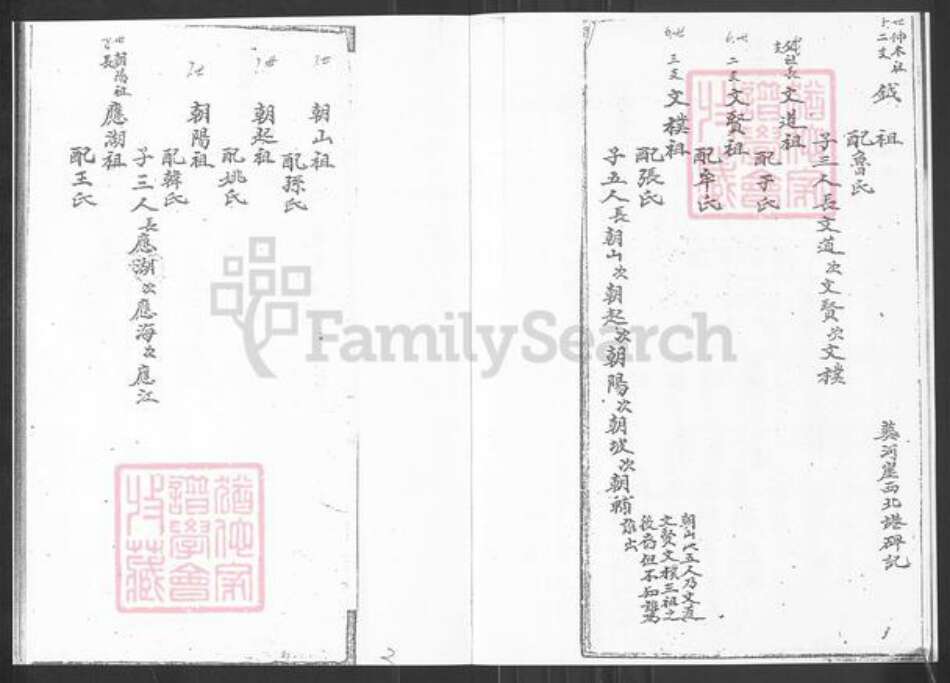 祖
二支
鉞祖
配魯氏
葬河崖西北塋碑記
子三人長文道次文賢次文樸
長支
文道祖
配于氏
二支
文賢祖
配牟氏
三支
文樸祖
配張氏
子五人長朝山次朝起次朝陽次朝坡次朝補
朝山此五人乃文道
文賢文樸三祖之
後裔但不知誰為
誰出
朝山祖
配孫氏
朝起祖
配姚氏
朝陽祖
配韓氏
子三人長應湖次應海次應江
朝陽祖
長
應湖祖
配王氏
譜學會
收藏
譜學會
收藏
FamilySearch
1
2